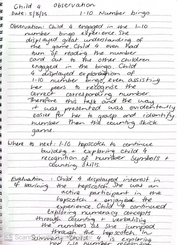 Child 4 Observation
Date: 5/8/15 1-10 Number bingo
Observation: Child 4 engaged in the 1-10
number bingo experience. She
displayed great understanding of
the game. Child 4 even had
turn of reading the number
card out to the other children
engaged in the bingo. Child
4 displayed exploration of
1-10 number bingo, even assisting
her peers to recognise the
correct corresponding number.
Therefore this task and the way
it was presented was evidentially
easier for her to grasp and identify
number than the counting duck
game.
Where to next: 1-10 hopscotch to continue
building + exploring child 4
recognition of number symbols +
counting skills.
Evaluation: Child 4 displayed interest in
the hopscotch. She was an
active participant in the
hopscotch + enjoyed the
experience. Child 4 continued
exploring numeracy concepts
through counting + verbalising
the numbers as she jumped
through the hopscotch. In
Summary: Child 4 is exploring